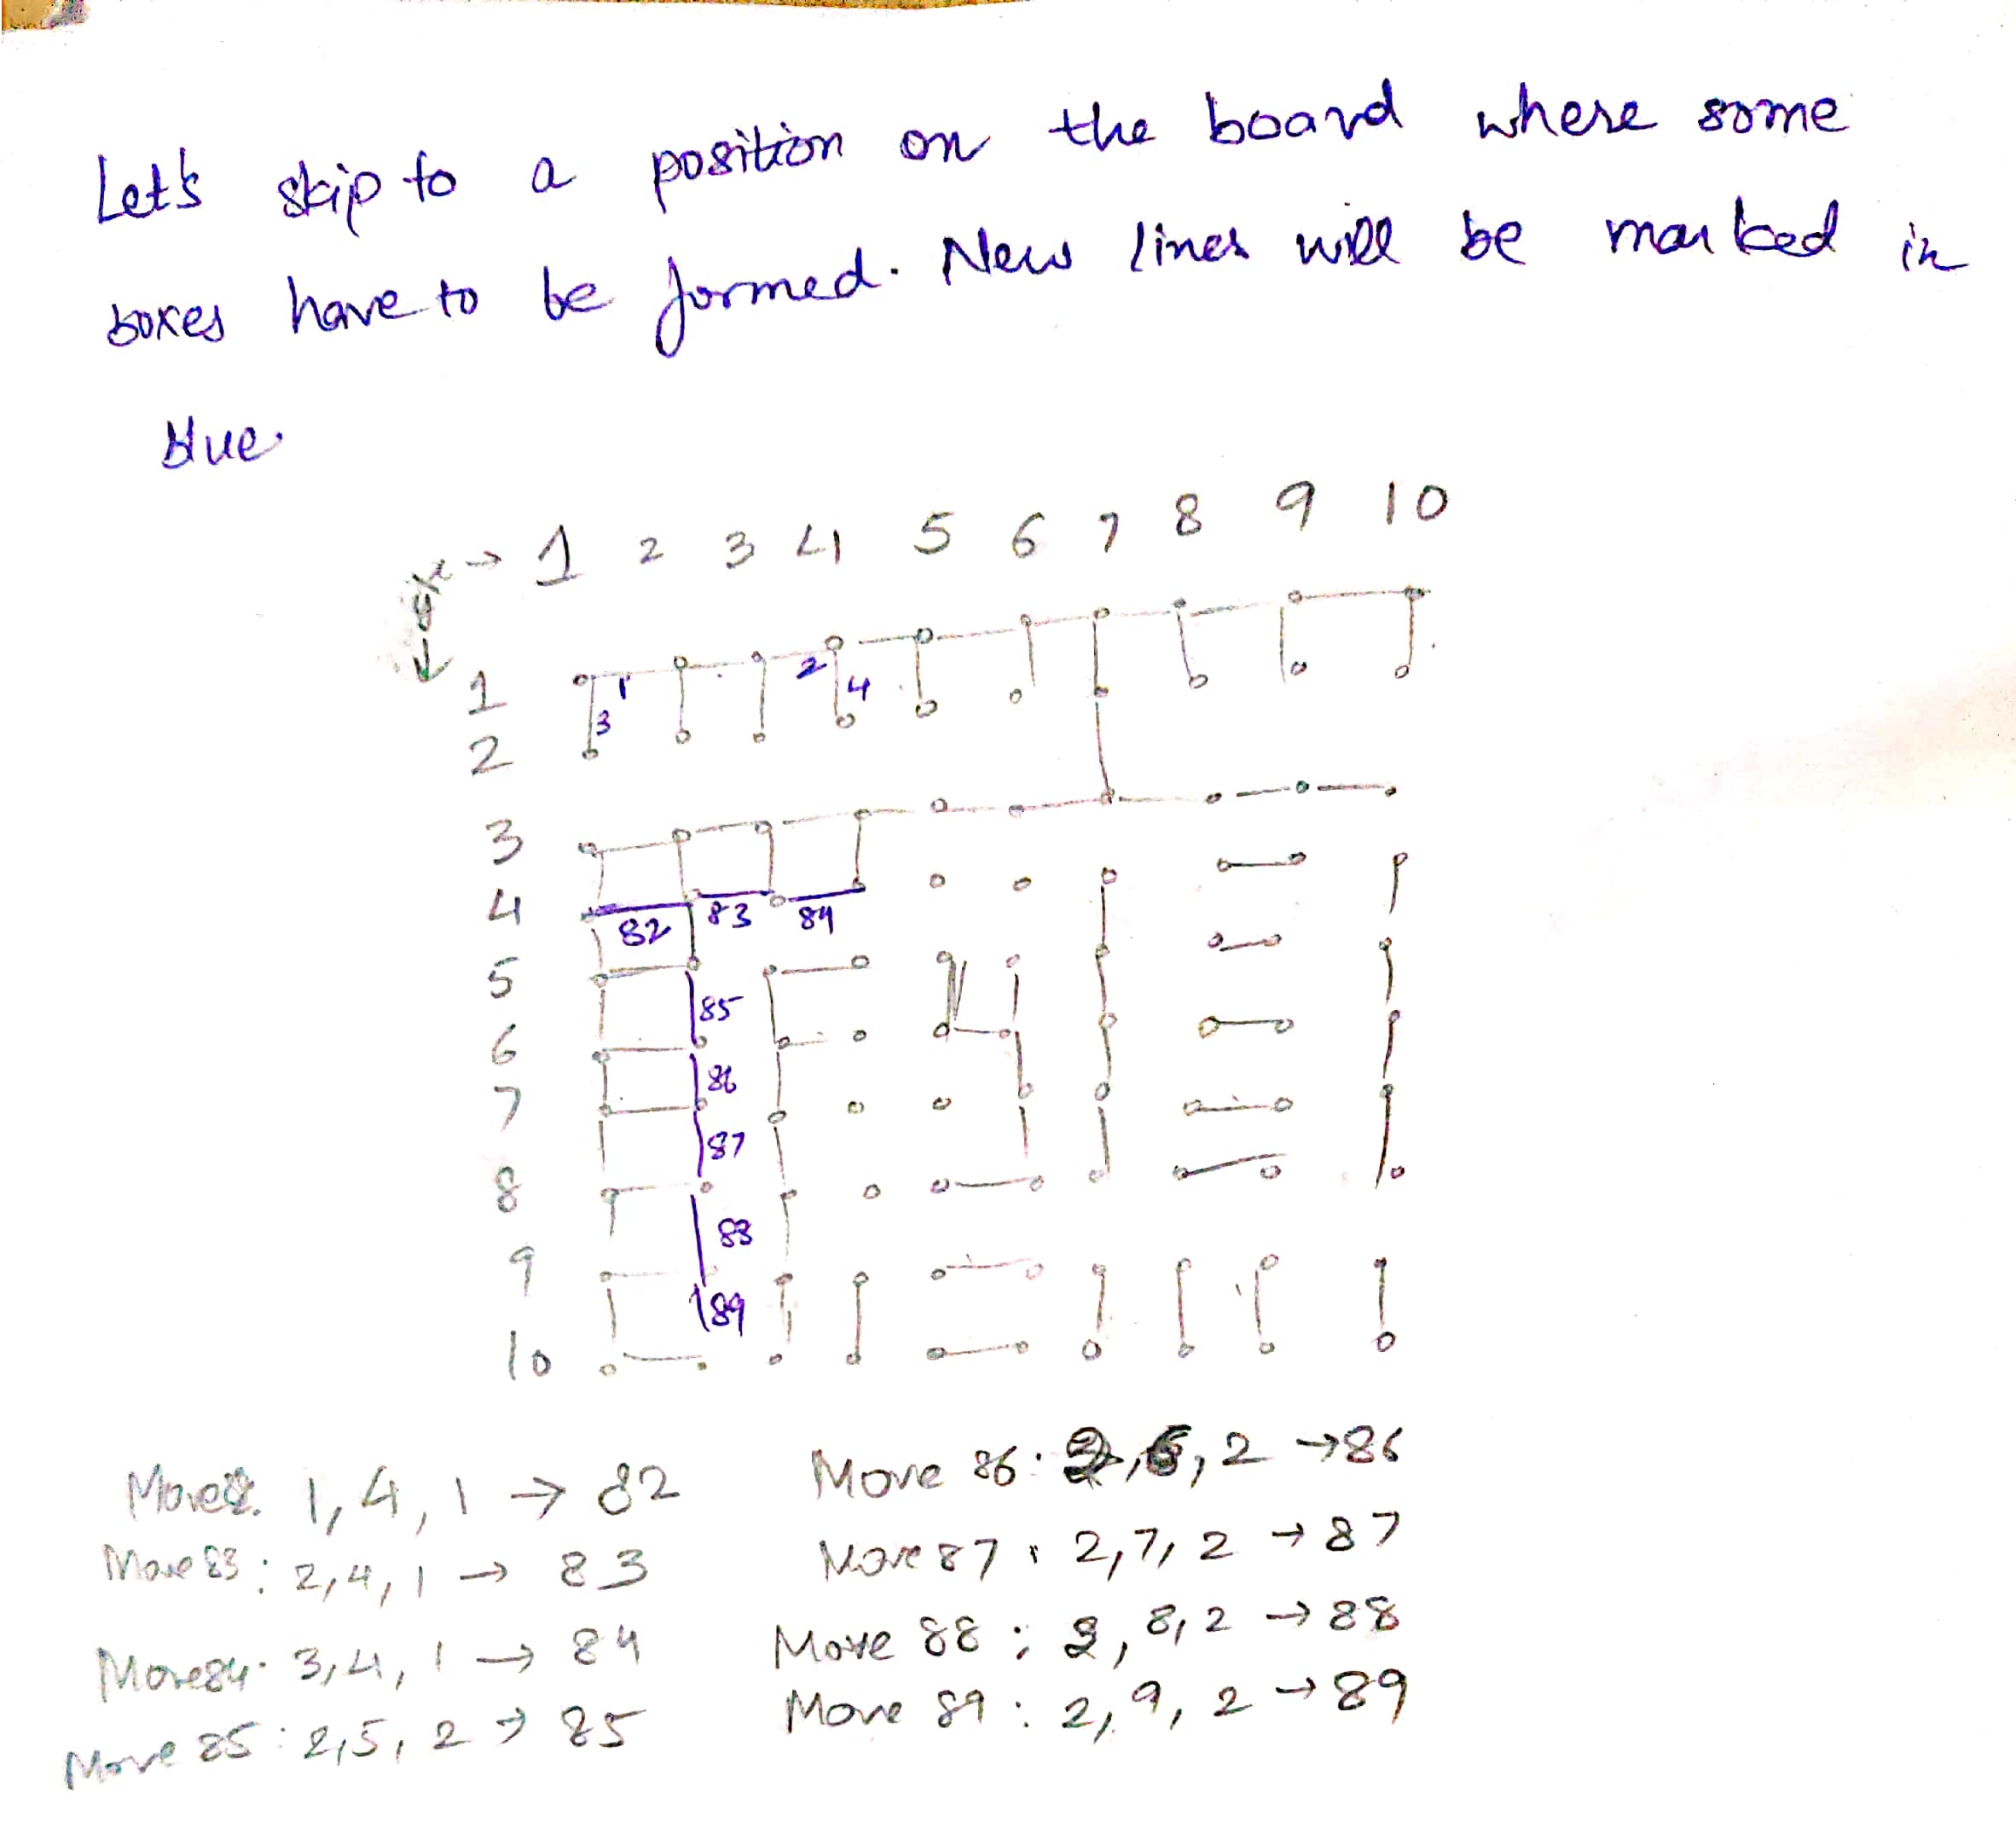 Let's skip to a position on the board where some
boxes have to be formed. New lines will be marked in
blue.
x → 1 2 3 4 5 6 7 8 9 10
y
↓
1 1 2
3 4
2
3
4
82 83 84
5
85
6
86
7
87
8
88
9
89
10
Move 82. 1,4,1 → 82
Move 83: 2,4,1 → 83
Move 84. 3,4,1 → 84
Move 85: 2,5,2 → 85
Move 86: 2,6,2 → 86
Move 87: 2,7,2 → 87
Move 88: 2,8,2 → 88
Move 89: 2,9,2 → 89